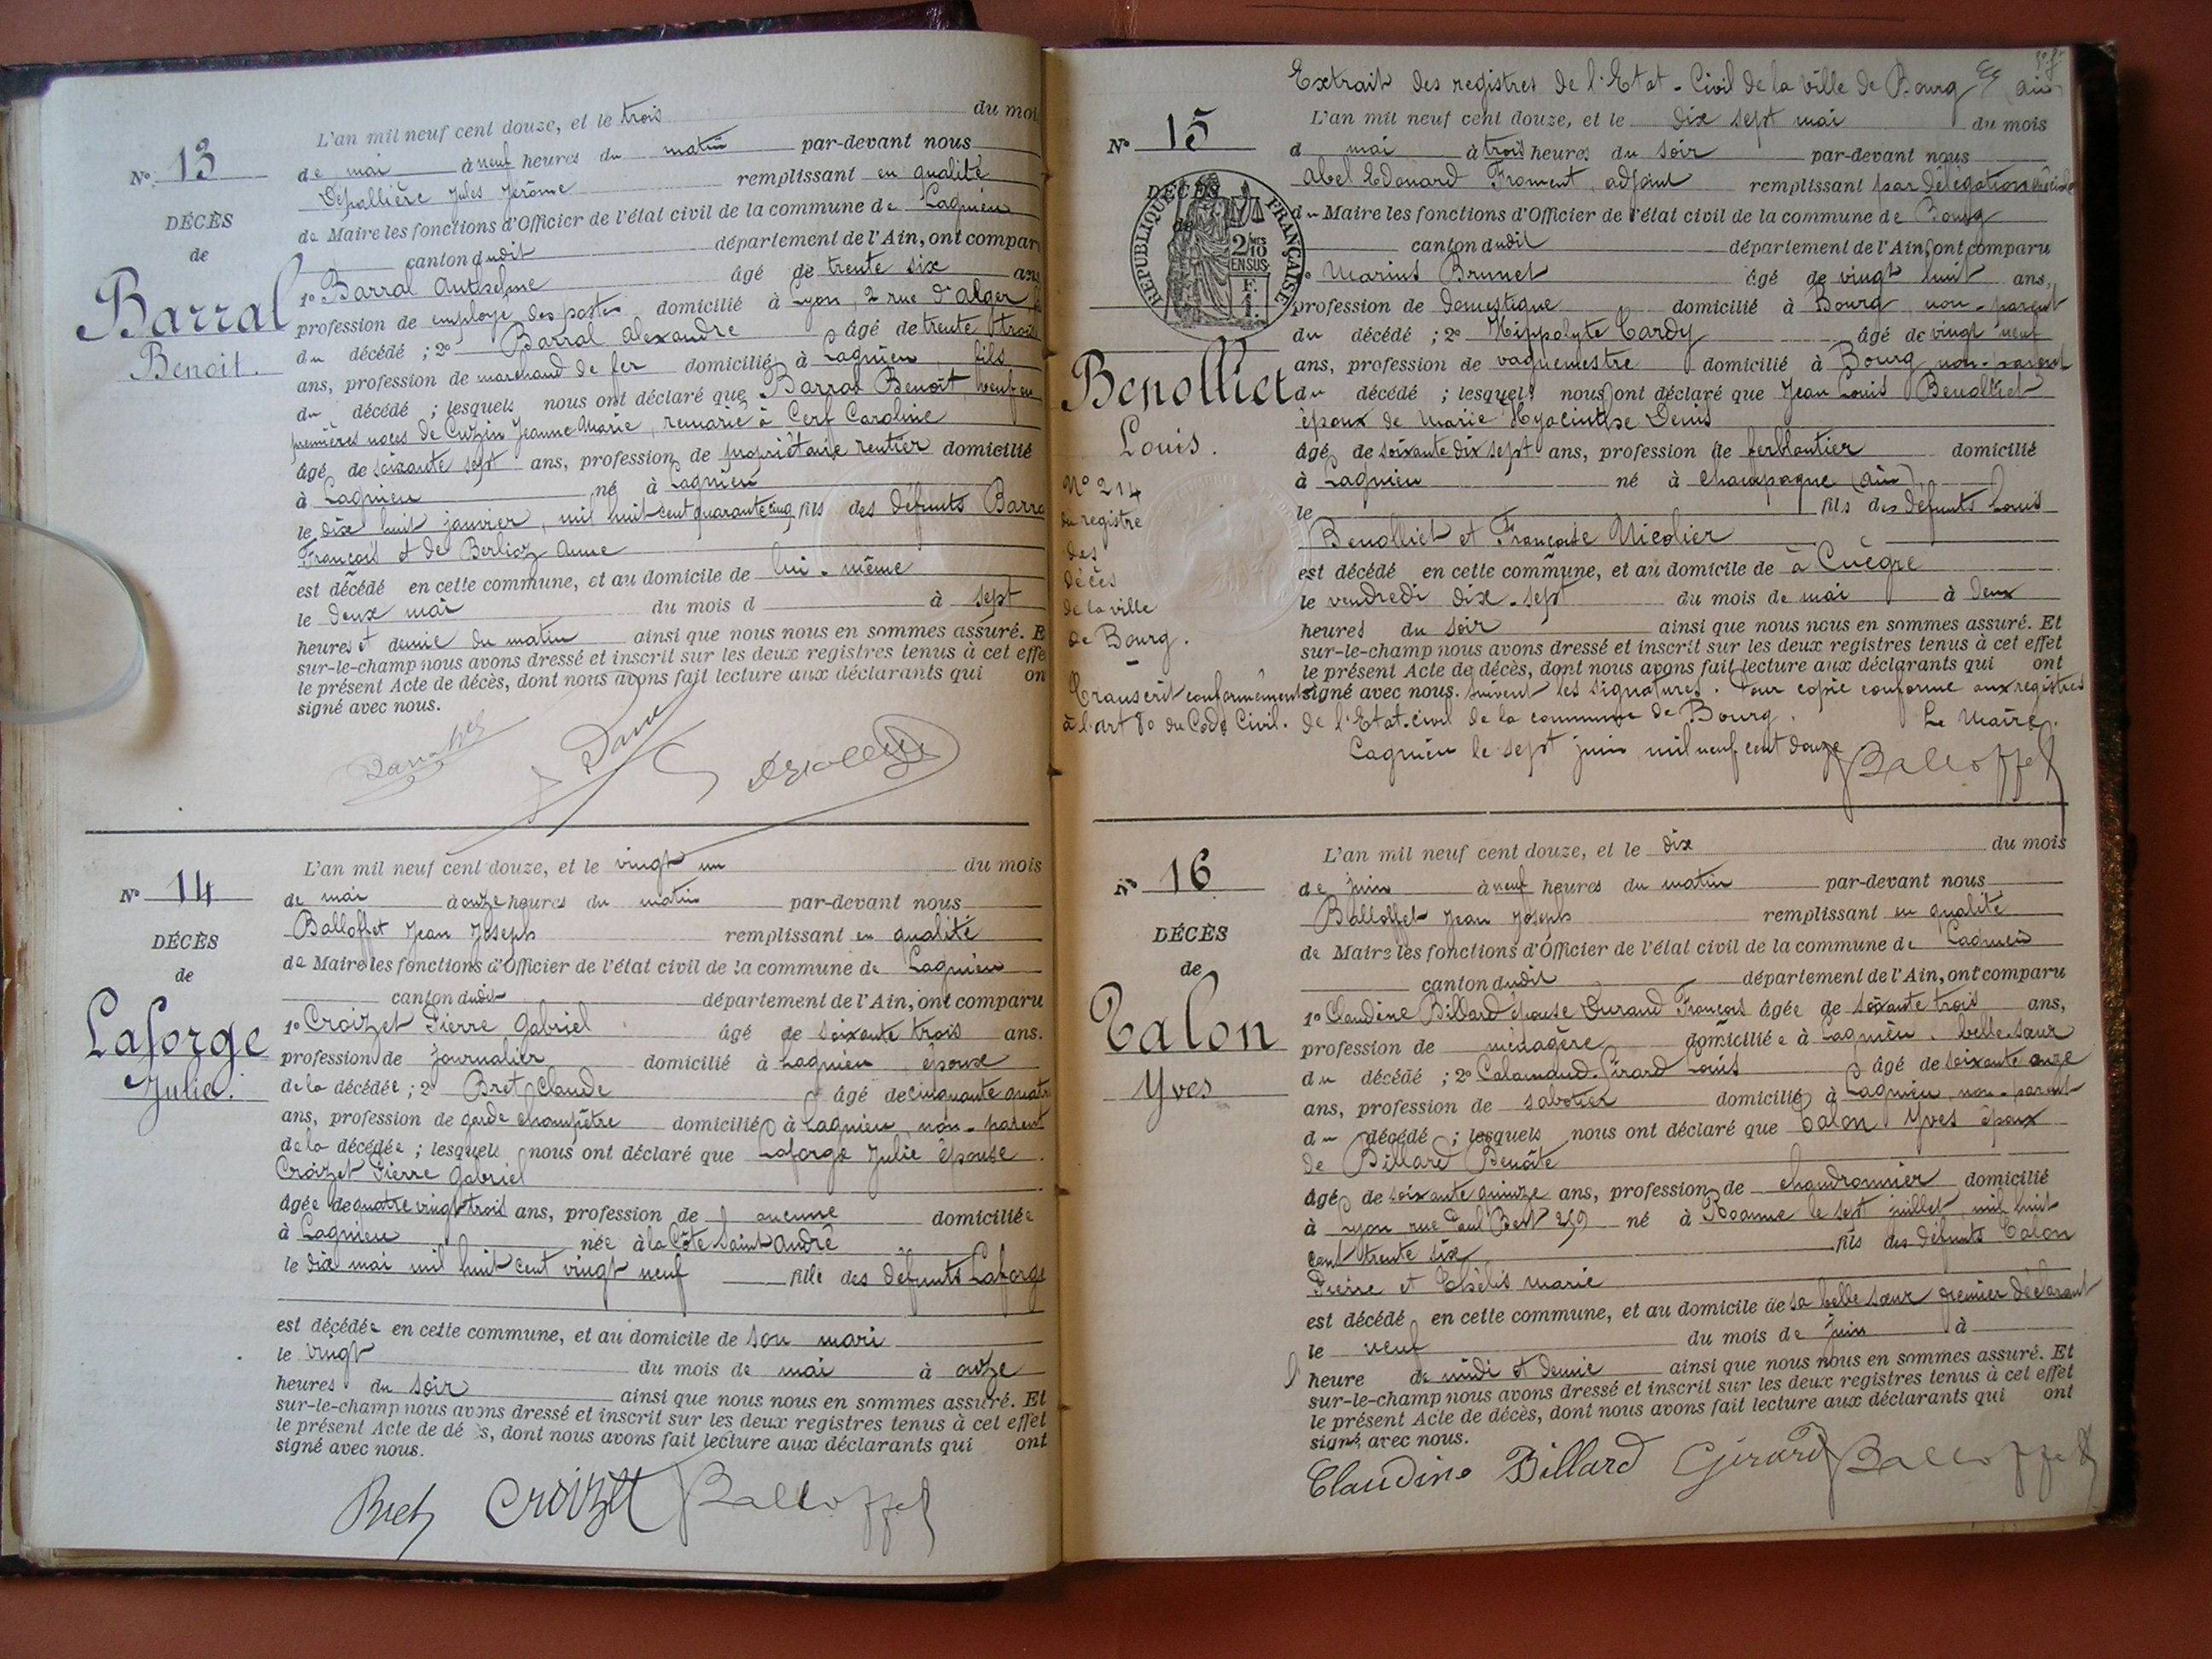 N° 13
DÉCÈS
de
Barral
Benoit.
L'an mil neuf cent douze, et le trois du moi
de mai à neuf heures du matin par-devant nous
Dépallière Jules Jérôme remplissant en qualité
de Maire les fonctions d'Officier de l'état civil de la commune de Lagnieu
canton dudit département de l'Ain, ont compar
1° Barral Anthelme âgé de trente six ans
profession de employé des postes domicilié à Lyon, 2 rue d'Alger
du décédé ; 2° Barral Alexandre âgé de trente trois
ans, profession de marchand de fer domicilié à Lagnieu, fils
du décédé ; lesquels nous ont déclaré que Barral Benoît, veuf en
premières noces de Cuzin Jeanne Marie, remarié à Cerf Caroline
âgé de soixante sept ans, profession de propriétaire rentier domicilié
à Lagnieu né à Lagnieu
le dix huit janvier, mil huit cent quarante cinq fils des défunts Barra
François et de Berlioz Anne
est décédé en cette commune, et au domicile de lui-même
le deux mai du mois d à sept
heures et demie du matin ainsi que nous nous en sommes assuré. E
sur-le-champ nous avons dressé et inscrit sur les deux registres tenus à cet effe
le présent Acte de décès, dont nous avons fait lecture aux déclarants qui on
signé avec nous.
N° 14
DÉCÈS
de
Laforge
Julie.
L'an mil neuf cent douze, et le vingt un du mois
de mai à onze heures du matin par-devant nous
Balloffet Jean Joseph remplissant en qualité
de Maire les fonctions d'Officier de l'état civil de la commune de Lagnieu
canton dudit département de l'Ain, ont comparu
1° Croizet Pierre Gabriel âgé de soixante trois ans.
profession de journalier domicilié à Lagnieu, époux
de la décédée ; 2° Bret Claude âgé de cinquante quatre
ans, profession de garde champêtre domicilié à Lagnieu, non-parent
de la décédée ; lesquels nous ont déclaré que Laforge Julie épouse
Croizet Pierre Gabriel
âgée de quatre vingt trois ans, profession de aucune domiciliée
à Lagnieu née à la Côte Saint André
le dix mai mil huit cent vingt neuf fille des défunts Laforge
est décédée en cette commune, et au domicile de son mari
le vingt du mois de mai à onze
heures du soir ainsi que nous nous en sommes assuré. Et
sur-le-champ nous avons dressé et inscrit sur les deux registres tenus à cet effet
le présent Acte de dé s, dont nous avons fait lecture aux déclarants qui ont
signé avec nous.
Bret Croizet Balloffet
Extrait des registres de l'Etat-Civil de la ville de Bourg
N° 15
DÉCÈS
de
RÉPUBLIQUE FRANÇAISE
2/10 EN SUS
F.
1.
Benolliet
Louis.
N° 214
du registre
des
décès
de la ville
de Bourg.
Transcrit conformément
à l'art 80 du Code Civil.
L'an mil neuf cent douze, et le dix sept mai du mois
d mai à trois heures du soir par-devant nous
Abel Edouard Froment, adjoint remplissant par délégation
du Maire les fonctions d'Officier de l'état civil de la commune de Bourg
canton dudit département de l'Ain, ont comparu
1° Marius Brunet âgé de vingt huit ans,
profession de domestique domicilié à Bourg non-parent
du décédé ; 2° Hippolyte Cardy âgé de vingt neuf
ans, profession de vaguemestre domicilié à Bourg non-parent
du décédé ; lesquels nous ont déclaré que Jean Louis Benolliet
époux de Marie Hyacinthe Denis
âgé de soixante dix sept ans, profession de ferblantier domicilié
à Lagnieu né à Champagne (Ain)
le fils des défunts Louis
Benolliet et Françoise Nicolier
est décédé en cette commune, et au domicile de à Cuègre
le vendredi dix-sept du mois de mai à deux
heures du soir ainsi que nous nous en sommes assuré. Et
sur-le-champ nous avons dressé et inscrit sur les deux registres tenus à cet effet
le présent Acte de décès, dont nous avons fait lecture aux déclarants qui ont
signé avec nous. Suivent les signatures. Pour copie conforme aux registres
de l'Etat-civil de la commune de Bourg. Le Maire.
Lagnieu le sept juin mil neuf cent douze
Balloffet
N° 16
DÉCÈS
de
Talon
Yves
L'an mil neuf cent douze, et le dix du mois
de juin à neuf heures du matin par-devant nous
Balloffet Jean Joseph remplissant en qualité
de Maire les fonctions d'Officier de l'état civil de la commune de Lagnieu
canton dudit département de l'Ain, ont comparu
1° Claudine Billard épouse Durand François âgée de soixante trois ans,
profession de ménagère domiciliée à Lagnieu, belle-sœur
du décédé ; 2° Calamand-Girard Louis âgé de soixante onze
ans, profession de sabotier domicilié à Lagnieu, non-parent
du décédé ; lesquels nous ont déclaré que Talon Yves époux
de Billard Benoîte
âgé de soixante quinze ans, profession de chaudronnier domicilié
à Lyon rue Paul Bert 259 né à Roanne le sept juillet mil huit
cent trente six fils des défunts Talon
Pierre et Thélis Marie
est décédé en cette commune, et au domicile de sa belle sœur premier déclarant
le neuf du mois de juin à
heure de midi et demie ainsi que nous nous en sommes assuré. Et
sur-le-champ nous avons dressé et inscrit sur les deux registres tenus à cet effet
le présent Acte de décès, dont nous avons fait lecture aux déclarants qui ont
signé avec nous.
Claudine Billard Girard Balloffet